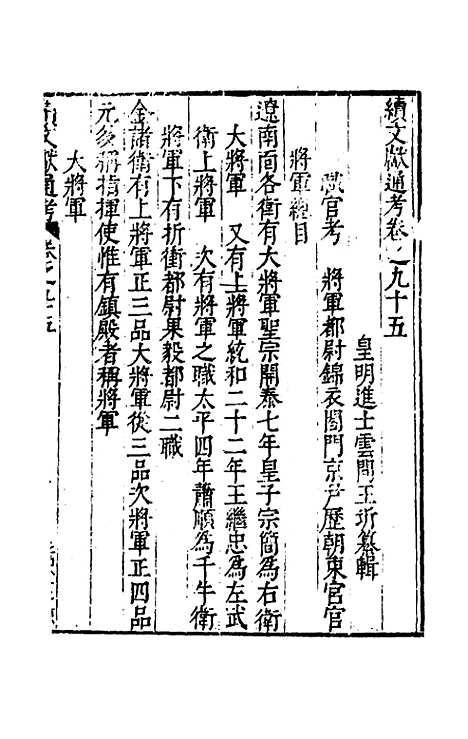 續文獻通考卷之九十五
皇明進士雲間王圻纂輯
職官考　將軍都尉錦衣閣門京尹歷朝東宮官
將軍總目
遼南面各衛有大將軍聖宗開泰七年皇子宗簡為右衛
大將軍　又有上將軍統和二十二年王繼忠為左武
衛上將軍　次有將軍之職太平四年蕭順為千牛衛
將軍下有折衝都尉果毅都尉二職
金諸衛有上將軍正三品大將軍從三品次將軍正四品
元多稱指揮使惟有鎮殿者稱將軍
大將軍
續文獻通考 卷之九十五